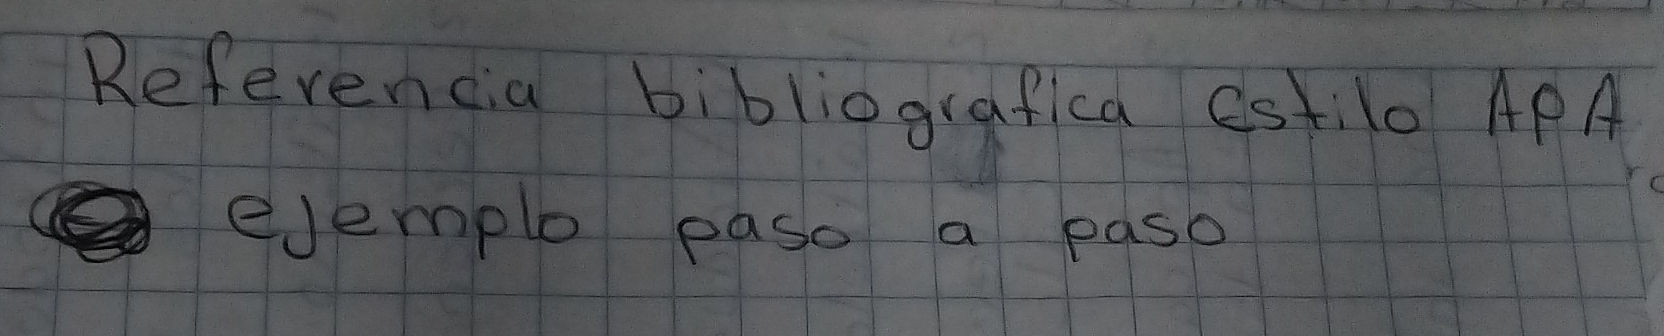 Referencia bibliografica Estilo APA
ejemplo paso a paso